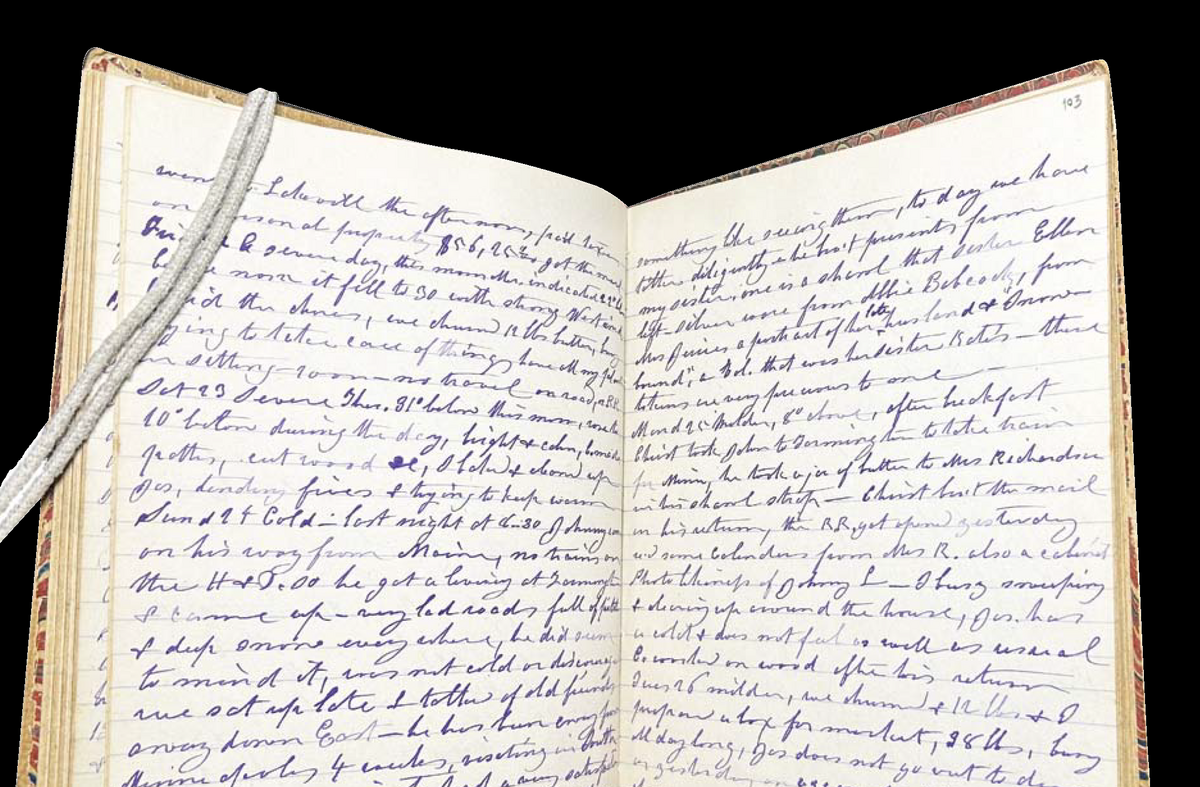 went to Lakeville the afternoon, paid taxes
on personal property $56,25 got the
severe day, this morn Ther. indicated
noon it fell to 30 with strong West wind
did the chores, we churn 12 lbs butter, busy
trying to take care of things, have all my
in sitting-room — no travel on road, or RR
Sat 23 Severe Ther. 31° below this morn,
10° below during the day, bright & calm,
paths, cut wood &c, I bake & clean up
Jas, tending fires & trying to keep warm
Sund 24 Cold — last night at 8-30 Johnny
on his way from Maine, no trains on
the H & D. so he got a livery at Farmington
& came up — very bad roads full of
& deep snow everywhere, he did seem
to mind it, was not cold or discouraged
we sat up late & talked of old friends
away down East — he has been away from
Minneapolis 4 weeks, visiting in
had a very
103
something like seeing them, to day we have
talked diligently & he has presents from
my sister, one is a shawl that sister Ellen
left — silver ware from Abbie Babcock, from
Mrs a portrait of her late husband & "Snow-
bound", a Vol. that was her sister — these
tokens are very precious to me —
Mond 25 Milder, 8° above, after breakfast
Christ took John to Farmington to take train
for Minn, he took a jar of butter to Mrs Richardson
in his shawl strap — Christ the mail
on his return, the RR, got open yesterday
some Calendars from Mrs R. also a cabinet
Photo likeness of Johnny L — I busy sweeping
& clearing up around the house, Jas. has
a cold & does not feel as well as usual
C. worked on wood after his return
Tues 26 milder, we churned 12 lbs & I
prepare a box for market, 38 lbs, busy
all day long, Jas does not go out to day
yesterday